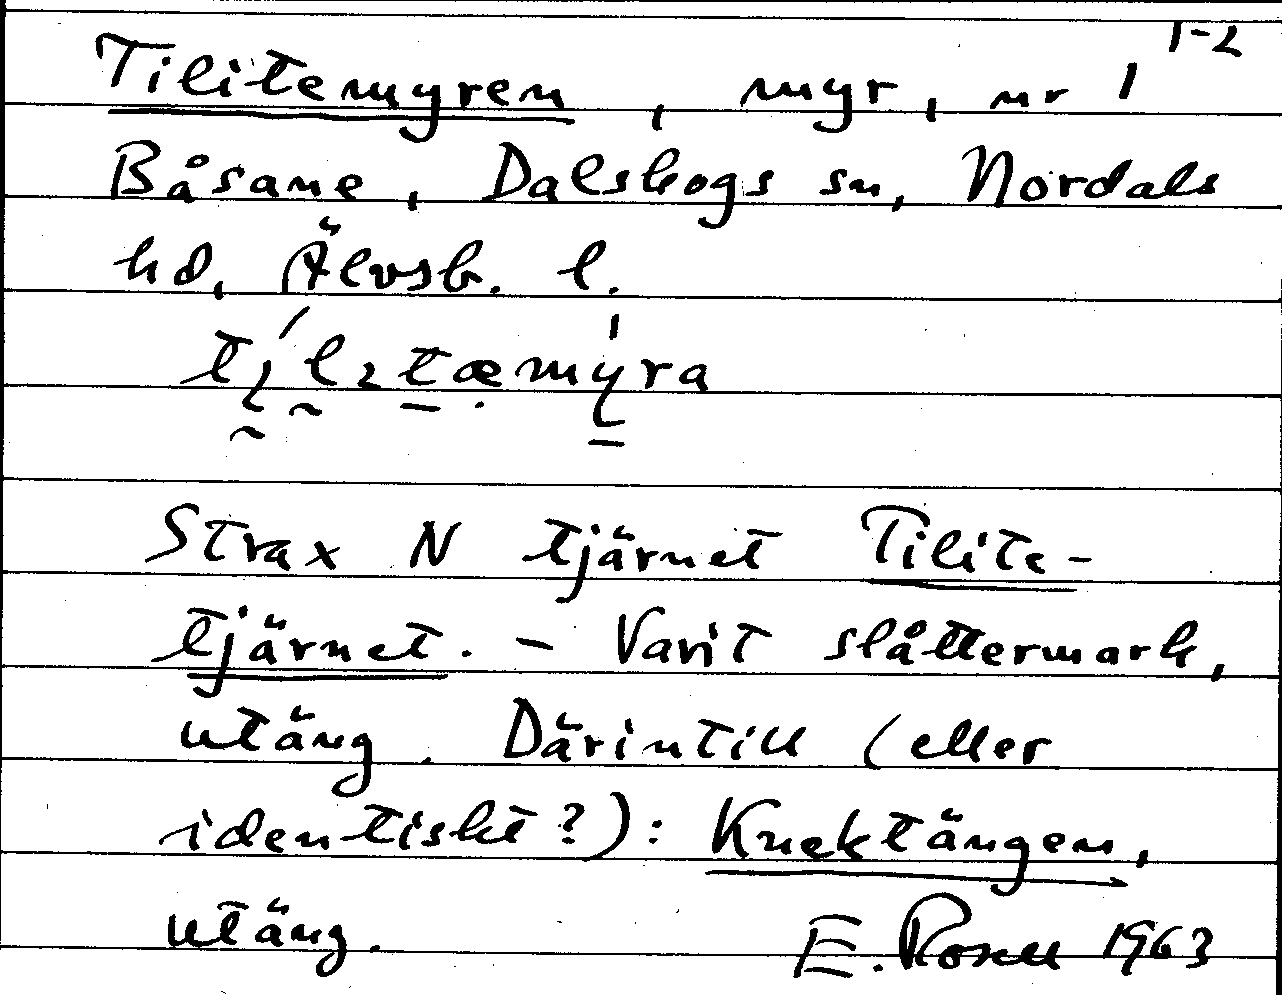 1-2
Tilitemyren, myr, nr 1
Båsane, Dalskogs sn, Nordals
hd, Älvsb. l.
Strax N tjärnet Tilite-
tjärnet. - Varit slåttermark,
utäng. Därintill (eller
identiskt?): Knektängen,
utäng. E. Rosell 1963